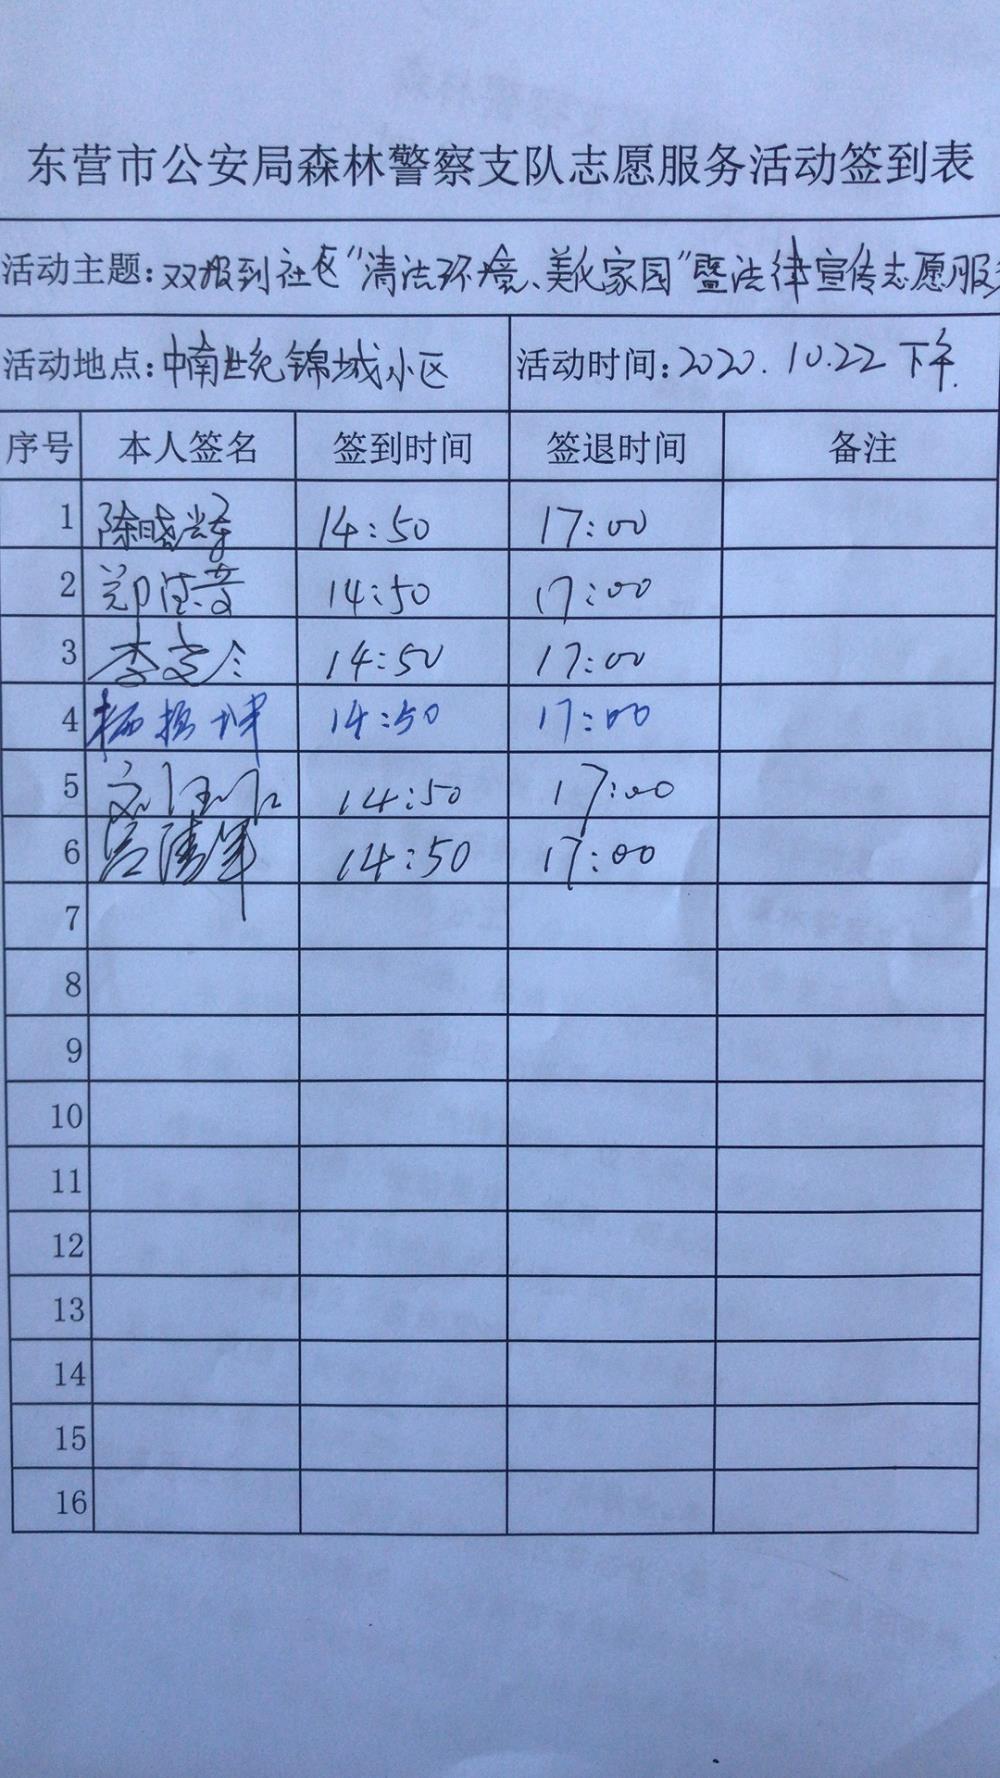 东营市公安局森林警察支队志愿服务活动签到表
活动主题:双报到社区“清洁环境、美化家园”暨法律宣传志愿服务
活动地点:中南世纪锦城小区 活动时间:2020.10.22下午
序号 本人签名 签到时间 签退时间 备注
1 陈晓 14:50 17:00
2 郑 14:50 17:00
3 李 14:50 17:00
4 杨振坤 14:50 17:00
5 14:50 17:00
6 14:50 17:00
7
8
9
10
11
12
13
14
15
16